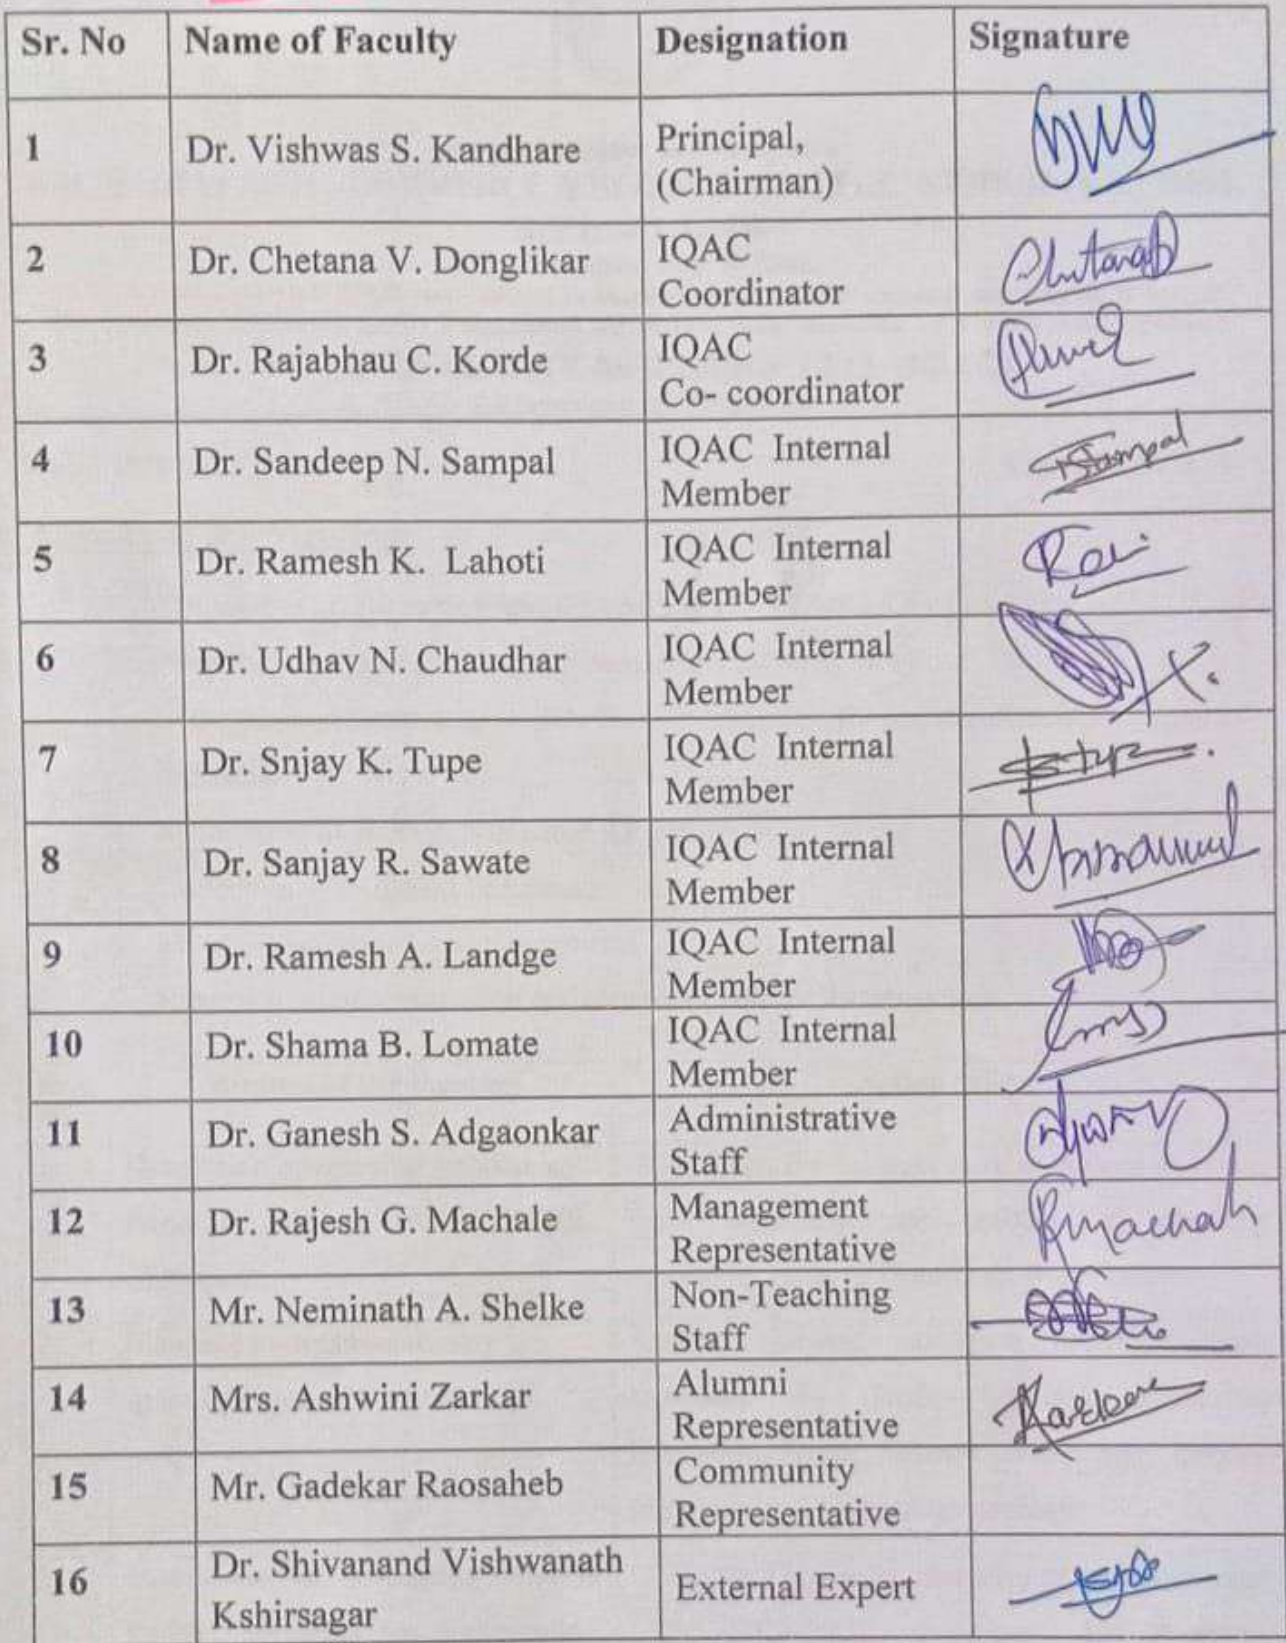 Sr. No Name of Faculty Designation Signature
1 Dr. Vishwas S. Kandhare Principal,
(Chairman)
2 Dr. Chetana V. Donglikar IQAC
Coordinator
3 Dr. Rajabhau C. Korde IQAC
Co- coordinator
4 Dr. Sandeep N. Sampal IQAC Internal
Member
5 Dr. Ramesh K. Lahoti IQAC Internal
Member
6 Dr. Udhav N. Chaudhar IQAC Internal
Member
7 Dr. Snjay K. Tupe IQAC Internal
Member
8 Dr. Sanjay R. Sawate IQAC Internal
Member
9 Dr. Ramesh A. Landge IQAC Internal
Member
10 Dr. Shama B. Lomate IQAC Internal
Member
11 Dr. Ganesh S. Adgaonkar Administrative
Staff
12 Dr. Rajesh G. Machale Management
Representative
13 Mr. Neminath A. Shelke Non-Teaching
Staff
14 Mrs. Ashwini Zarkar Alumni
Representative
15 Mr. Gadekar Raosaheb Community
Representative
16 Dr. Shivanand Vishwanath
Kshirsagar External Expert